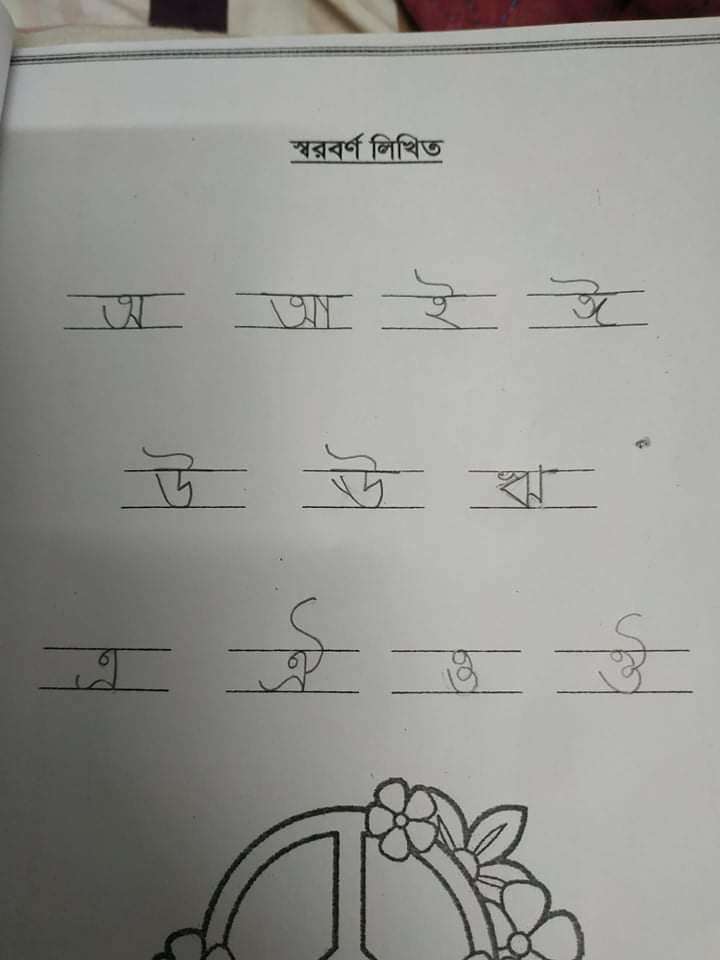 স্বরবর্ণ লিখিত
অ আ ই ঈ
উ ঊ ঋ
এ ঐ ও ঔ